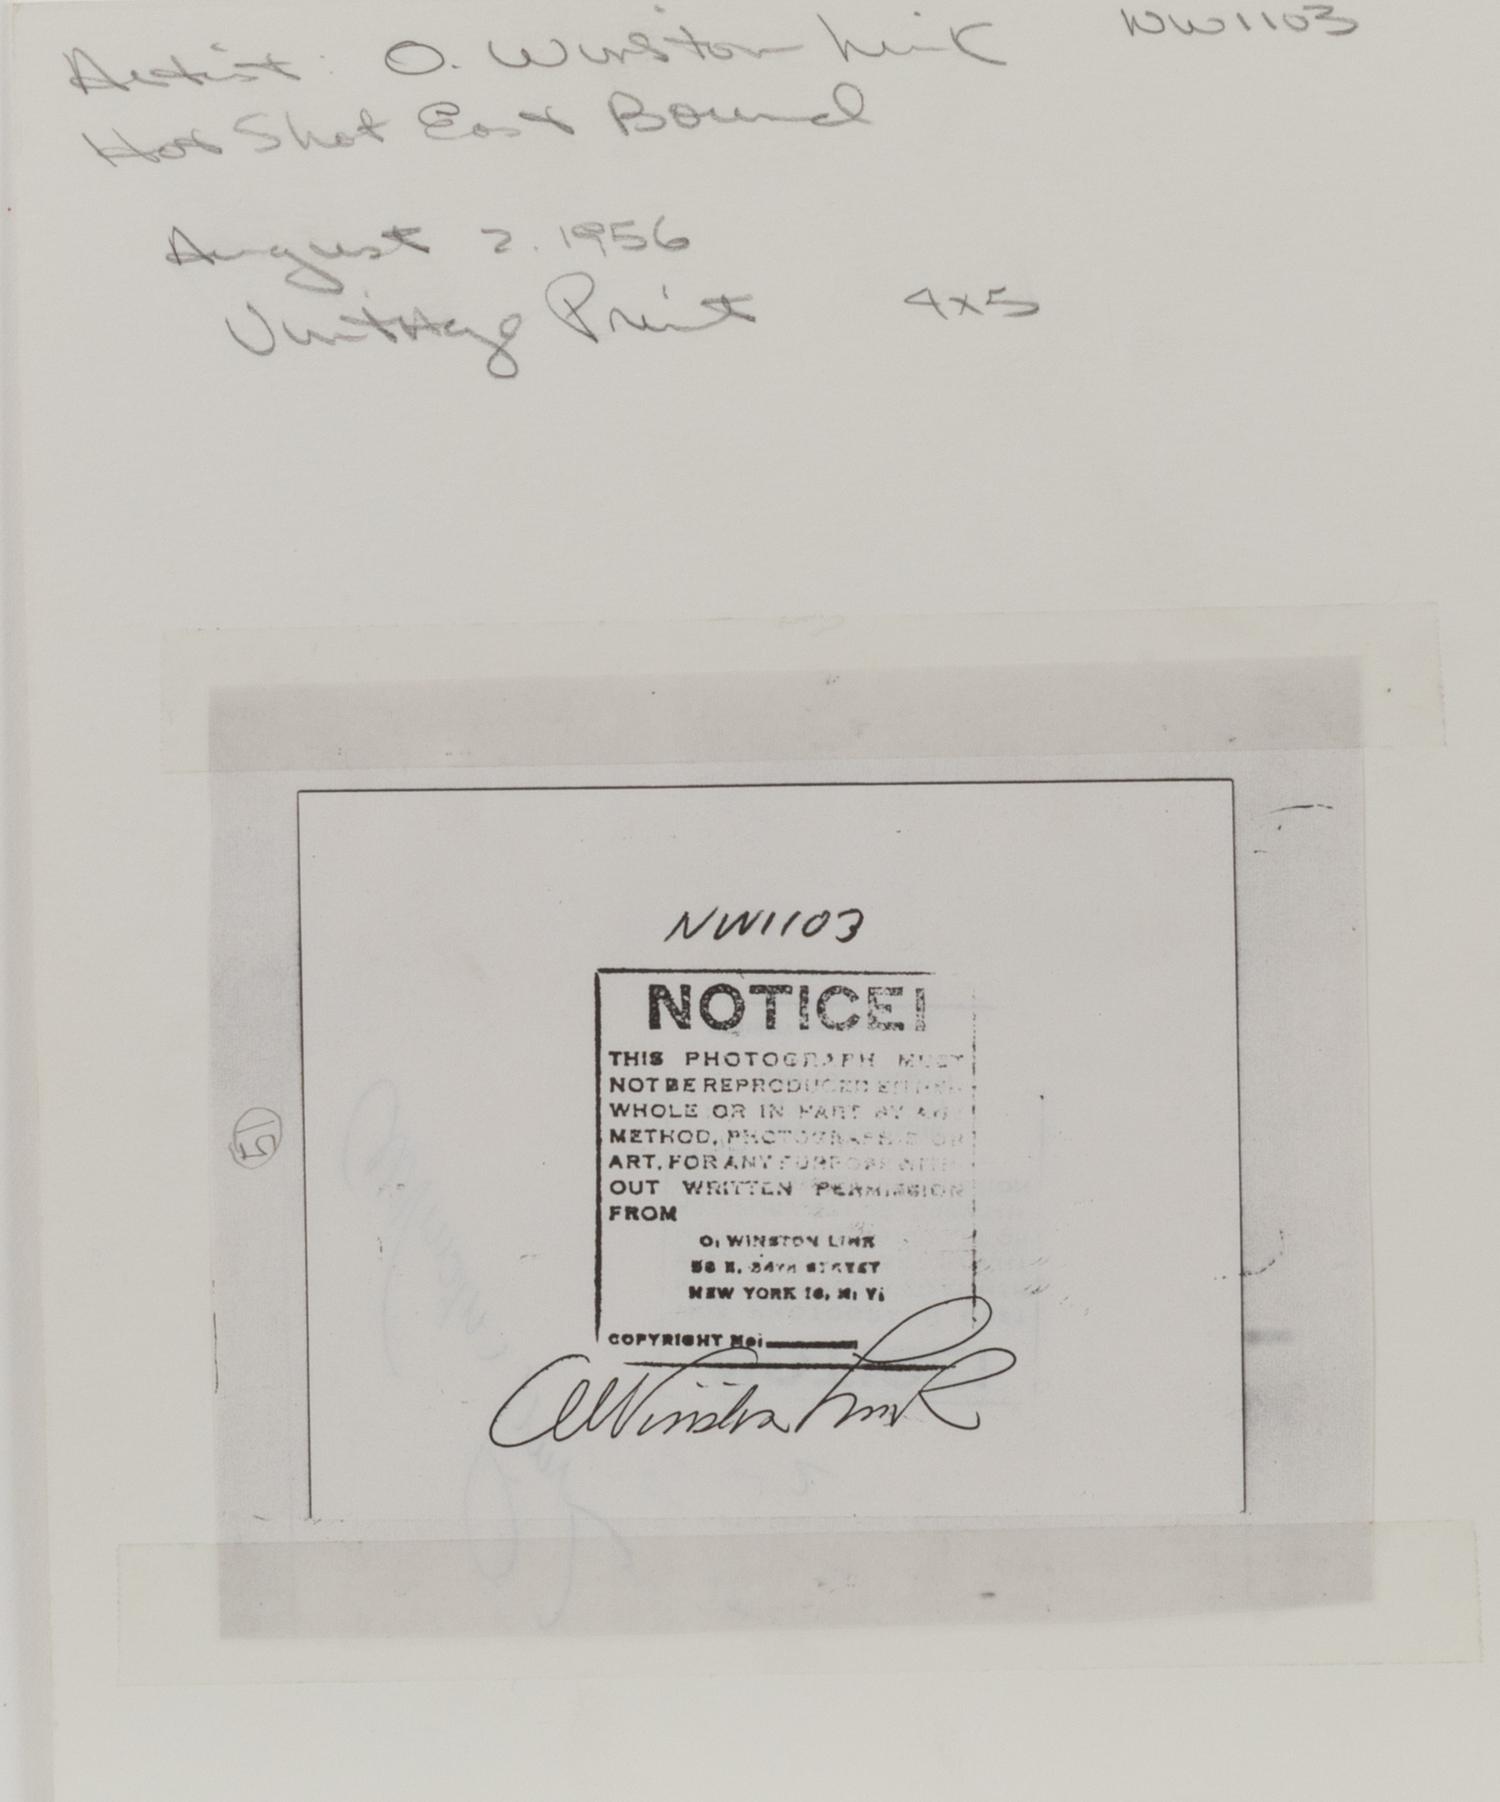 Artist: O. Winston Link NW1103
Hot Shot East Bound
August 2. 1956
Vintage Print 4x5
NW1103
NOTICE!
THIS PHOTOGRAPH MUST
NOT BE REPRODUCED EITHER
WHOLE OR IN PART BY ANY
METHOD, PHOTOGRAPHIC OR
ART, FOR ANY PURPOSE WITH-
OUT WRITTEN PERMISSION
FROM
O. WINSTON LINK
58 E. 34TH STREET
NEW YORK 16, N. Y.
COPYRIGHT No.
O Winston Link
51